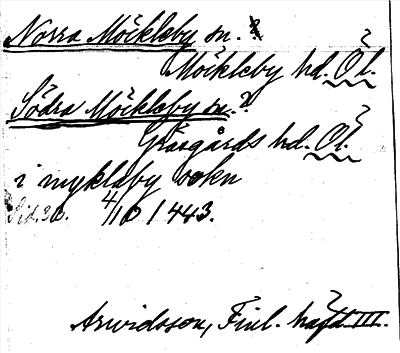 Norra Möckleby sn. ?
Möckleby hd. Öl.
Södra Möckleby sn. ?
Gräsgårds hd. Öl.
i myklaby sokn
Sid. 30. 4/10 1443.
Arwidsson, Finl. hafd III.